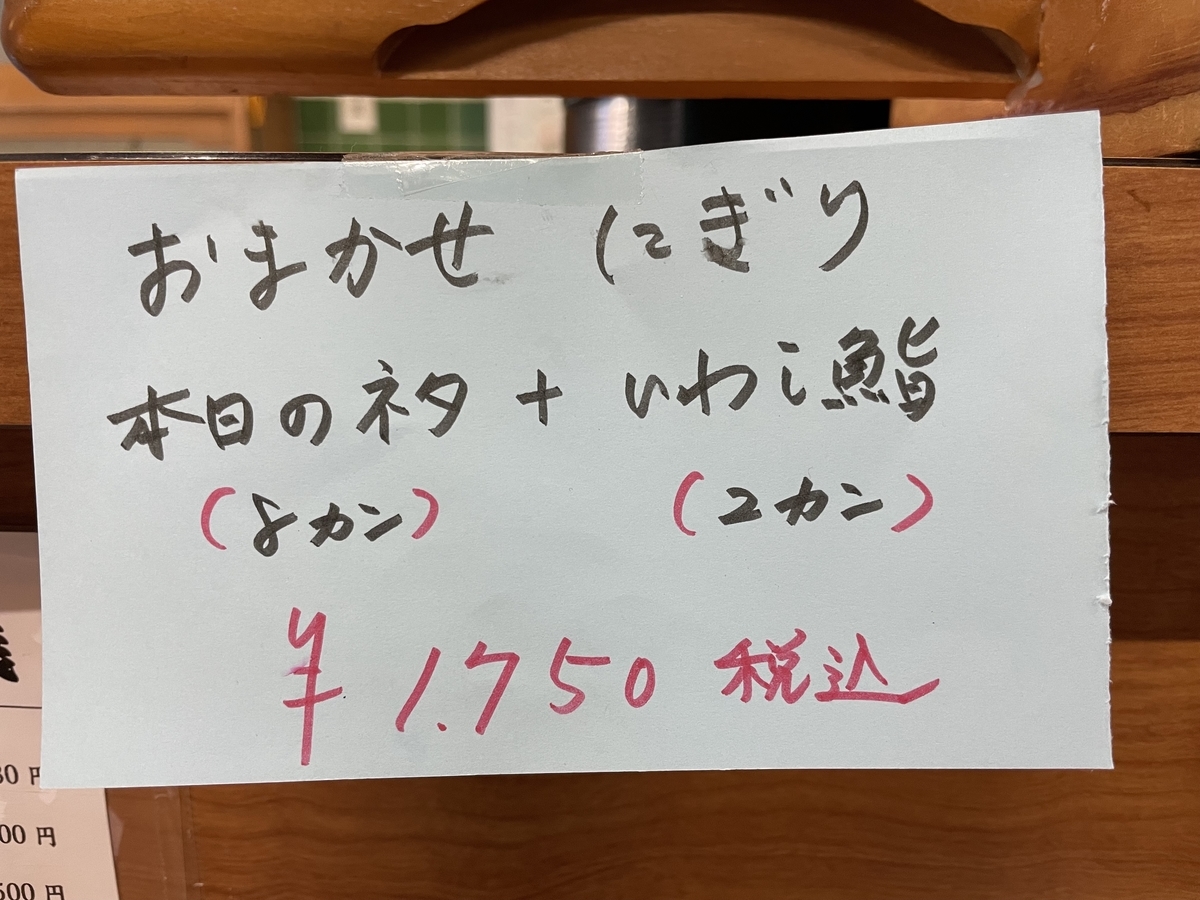 おまかせ にぎり
本日のネタ + いわし鮨
(8カン) (2カン)
¥1.750 税込
00 円
500 円